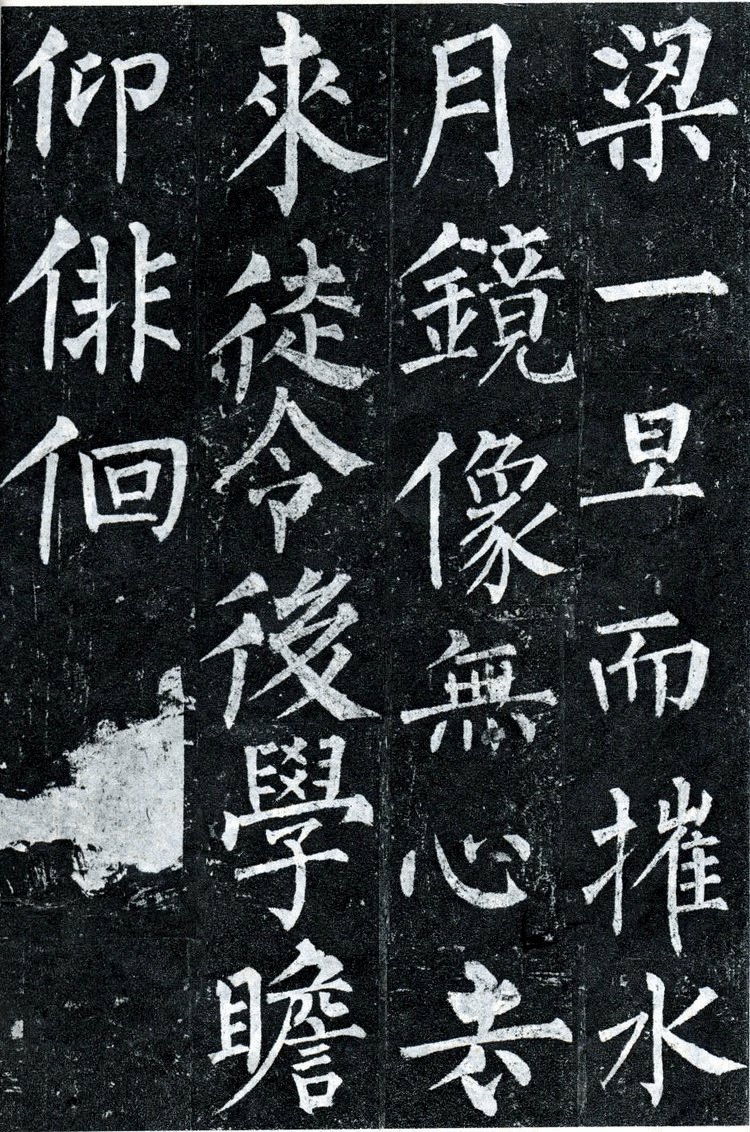 梁一旦而摧水
月鏡像無心去
來徒令後學瞻
仰俳佪